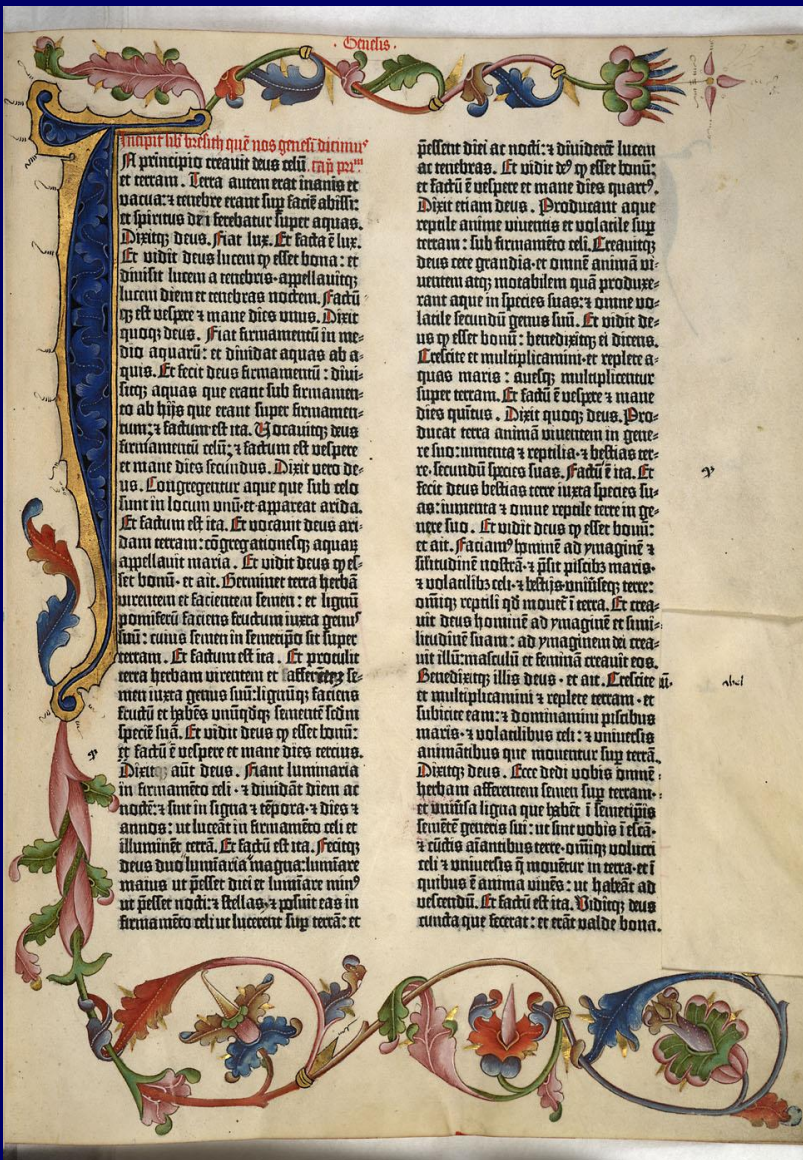 Genesis
Incipit lib' bresith quē nos genesī dicimus
IN principio creauit deus celū cap̄ prim̄
et terram. Terra autem erat inanis et
vacua: ⁊ tenebre erant sup̄ faciē abissi:
et spiritus dei ferebatur super aquas.
Dixitqꝫ deus. Fiat lux. Et facta ē lux.
Et vidit deus lucem ꝙ esset bona: et
diuisit lucem a tenebris· appellauitqꝫ
lucem diem et tenebras noctem. Factū
qꝫ est vespere ⁊ mane dies vnus. Dixit
quoqꝫ deus. Fiat firmamentū in me-
dio aquarū: et diuidat aquas ab a-
quis. Et fecit deus firmamentū: diui-
sitqꝫ aquas que erant sub firmamen-
to ab hijs que erant super firmamen-
tum: ⁊ factum est ita. Vocauitqꝫ deus
firmamentū celū: ⁊ factum est vespere
et mane dies secundus. Dixit vero de-
us. Congregentur aque que sub celo
sunt in locum vnū· et appareat arida.
Et factum est ita. Et vocauit deus ari-
dam terram: cōgregationesqꝫ aquaꝝ
appellauit maria. Et vidit deus ꝙ es-
set bonū· et ait. Germinet terra herbā
virentem et facientem semen: et lignū
pomiferū faciens fructum iuxta genus
suū: cuius semen in semetipō sit super
terram. Et factum est ita. Et protulit
terra herbam virentem et se-
men iuxta genus suū: lignūqꝫ faciens
fructū et habēs vnūqdqꝫ sementē scdm
speciē suā. Et vidit deus ꝙ esset bonū:
et factū ē vespere et mane dies tercius.
Dixit aūt deus. Fiant luminaria
in firmamēto celi· ⁊ diuidāt diem ac
noctē: ⁊ sint in signa ⁊ tēpora· ⁊ dies ⁊
annos: ut luceāt in firmamēto celi et
illuminēt terrā. Et factū est ita. Fecitqꝫ
deus duo lumīaria magna: lumīare
maius ut p̄esset diei et lumīare min⁹
ut p̄esset nocti: ⁊ stellas· ⁊ posuit eas in
firmamēto celi ut lucerent sup̄ terrā: et
p̄essent diei ac nocti: ⁊ diuiderēt lucem
ac tenebras. Et vidit de⁹ ꝙ esset bonū:
et factū ē vespere et mane dies quart⁹.
Dixit etiam deus. Producant aque
reptile anime viuentis et volatile sup̄
terram: sub firmamēto celi. Creauitqꝫ
deus cete grandia· et omnē animā vi-
uentem atqꝫ motabilem quā produxe-
rant aque in species suas: ⁊ omne vo-
latile secundū genus suū. Et vidit de-
us ꝙ esset bonū: benedixitqꝫ ei dicens.
Crescite et multiplicamini· et replete a-
quas maris: auesqꝫ multiplicentur
super terram. Et factū ē vespere ⁊ mane
dies quītus. Dixit quoqꝫ deus. Pro-
ducat terra animā viuentem in gene-
re suo: iumenta ⁊ reptilia· ⁊ bestias ter-
re· secundū species suas. Factū ē ita. Et
fecit deus bestias terre iuxta species su-
as: iumenta ⁊ omne reptile terre in ge-
nere suo. Et vidit deus ꝙ esset bonū:
et ait. Faciam⁹ hominē ad ymaginē ⁊
silitudinē nostrā· ⁊ p̄sit piscibꝫ maris·
⁊ volatilibꝫ celi· ⁊ bestijs· vniūseqꝫ terre:
omīqꝫ reptili qd mouet̄ ī terra. Et crea-
uit deus hominē ad ymaginē et simi-
litudinē suam: ad ymaginem dei crea-
uit illū: masculū et feminā creauit eos.
Benedixitqꝫ illis deus· et ait. Crescite
et multiplicamini ⁊ replete terram· et
subicite eam: ⁊ dominamini piscibus
maris· ⁊ volatilibus celi: ⁊ vniuersis
animātibus que mouentur sup̄ terrā.
Dixitqꝫ deus. Ecce dedi vobis omnē
herbam afferentem semen sup̄ terram·
et vniūsa ligna que habēt ī semetip̄is
semētē generis sui: ut sint vobis ī escā·
⁊ cūctis aīantibus terre· omīqꝫ volucri
celi ⁊ vniuersis q̄ mouētur in terra· et ī
quibus ē anima viuēs: ut habeāt ad
vescendū. Et factū est ita. Viditqꝫ deus
cuncta que fecerat: et erāt valde bona.